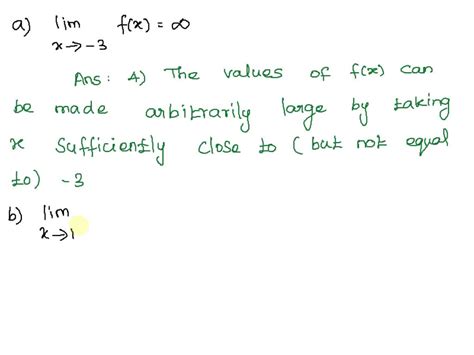 a) lim f(x) = ∞
x→-3
Ans: 4) The values of f(x) can
be made arbitrarily large by taking
x sufficiently close to (but not equal
to) -3
b) lim
x→1